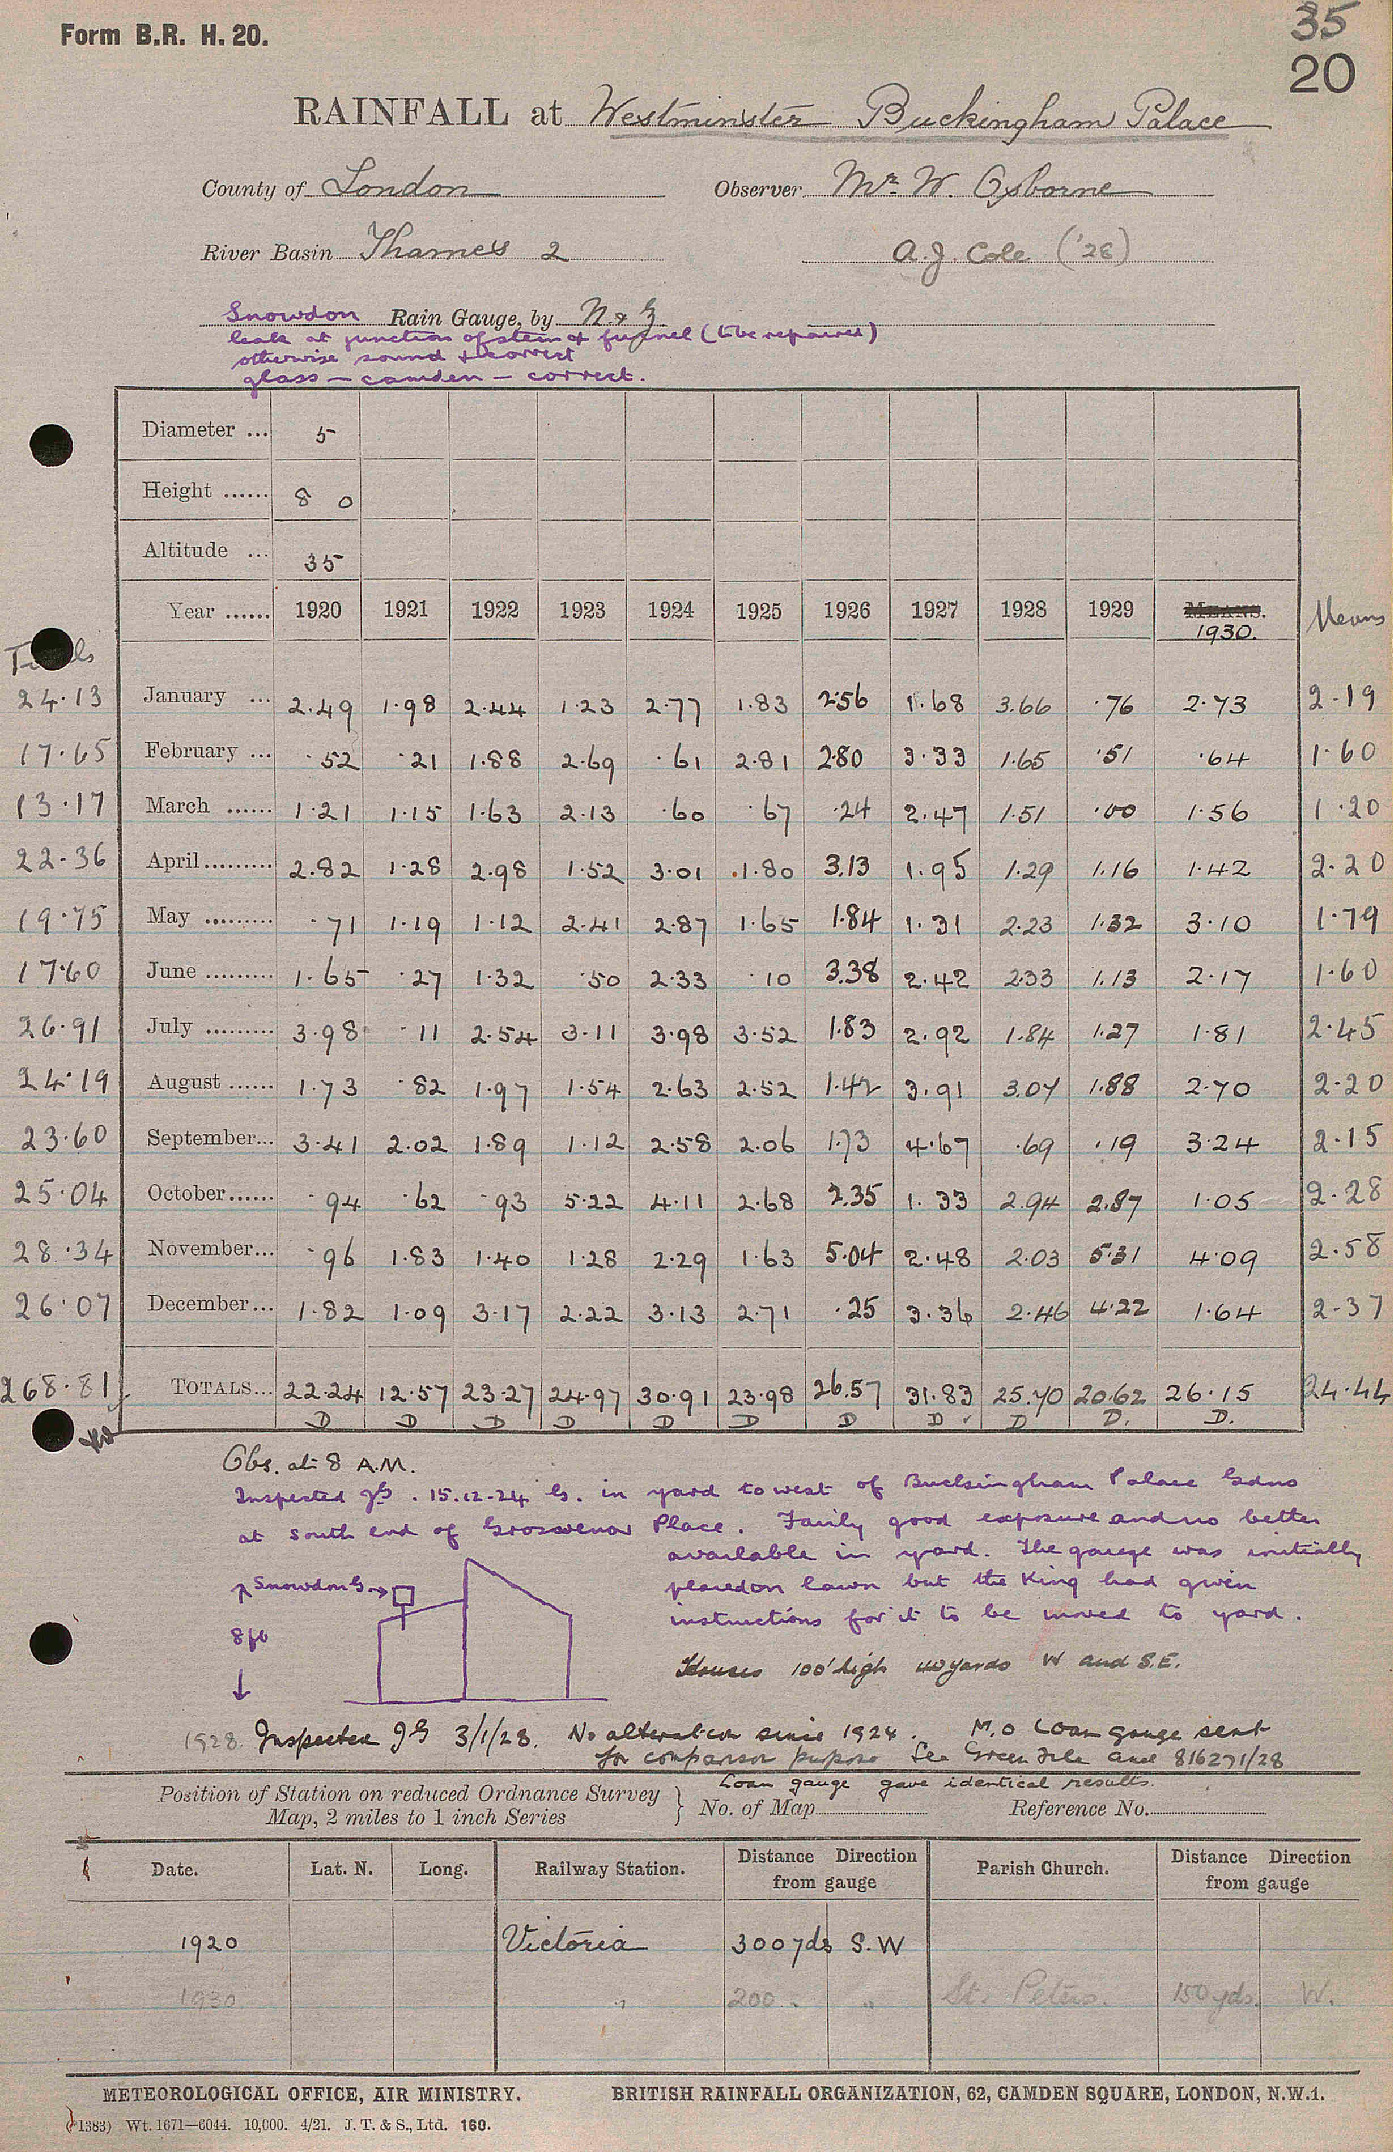 Form B.R. H. 20.
35
20
RAINFALL at Westminster Buckingham Palace
County of London Observer Mr. W. Osborne
River Basin Thames 2 A.J. Cole ('28)
Snowdon Rain Gauge, by N & Z
leak at junction of stem & funnel (to be repaired)
otherwise sound & correct
glass — camden — correct.
Diameter ... 5
Height ...... 8 0
Altitude ... 35
Year ...... 1920 1921 1922 1923 1924 1925 1926 1927 1928 1929 MEANS. 1930. Means
Totals
24.13 January ... 2.49 1.98 2.44 1.23 2.77 1.83 2.56 1.68 3.66 .76 2.73 2.19
17.65 February ... .52 .21 1.88 2.69 .61 2.81 2.80 3.33 1.65 .51 .64 1.60
13.17 March ...... 1.21 1.15 1.63 2.13 .60 .67 .24 2.47 1.51 .00 1.56 1.20
22.36 April ......... 2.82 1.28 2.98 1.52 3.01 1.80 3.13 1.95 1.29 1.16 1.42 2.20
19.75 May ......... .71 1.19 1.12 2.41 2.87 1.65 1.84 1.31 2.23 1.32 3.10 1.79
17.60 June ......... 1.65 .27 1.32 .50 2.33 .10 3.38 2.42 2.33 1.13 2.17 1.60
26.91 July ......... 3.98 .11 2.54 3.11 3.98 3.52 1.83 2.92 1.84 1.27 1.81 2.45
24.19 August ...... 1.73 .82 1.97 1.54 2.63 2.52 1.42 3.91 3.07 1.88 2.70 2.20
23.60 September... 3.41 2.02 1.89 1.12 2.58 2.06 1.73 4.67 .69 .19 3.24 2.15
25.04 October ...... .94 .62 .93 5.22 4.11 2.68 2.35 1.33 2.94 2.87 1.05 2.28
28.34 November... .96 1.83 1.40 1.28 2.29 1.63 5.04 2.48 2.03 5.31 4.09 2.58
26.07 December ... 1.82 1.09 3.17 2.22 3.13 2.71 .25 3.36 2.46 4.22 1.64 2.37
268.81 TOTALS... 22.24 12.57 23.27 24.97 30.91 23.98 26.57 31.83 25.70 20.62 26.15 24.44
D D D D D D D D D D. D.
Obs. at 8 A.M.
Inspected JG. 15.12.24 G. in yard to west of Buckingham Palace Gdns
at south end of Grosvenor Place. Fairly good exposure and no better
available in yard. The gauge was initially
placed on lawn but the King had given
instructions for it to be moved to yard.
Snowdon G
8 ft
Houses 100' high 40 yards W and S.E.
1928. Inspected JG 3/1/28. No alteration since 1924. M.O Loan gauge sent
for comparison purpose See Green File and 816271/28
Loan gauge gave identical results.
Position of Station on reduced Ordnance Survey
Map, 2 miles to 1 inch Series } No. of Map Reference No.
Date. Lat. N. Long. Railway Station. Distance Direction from gauge Parish Church. Distance Direction from gauge
1920 Victoria 300 yds S.W
1930 " 200 " " St. Peters. 150 yds. W.
METEOROLOGICAL OFFICE, AIR MINISTRY. BRITISH RAINFALL ORGANIZATION, 62, CAMDEN SQUARE, LONDON, N.W.1.
(1383) Wt. 1671—6044. 10,000. 4/21. J. T. & S., Ltd. 160.